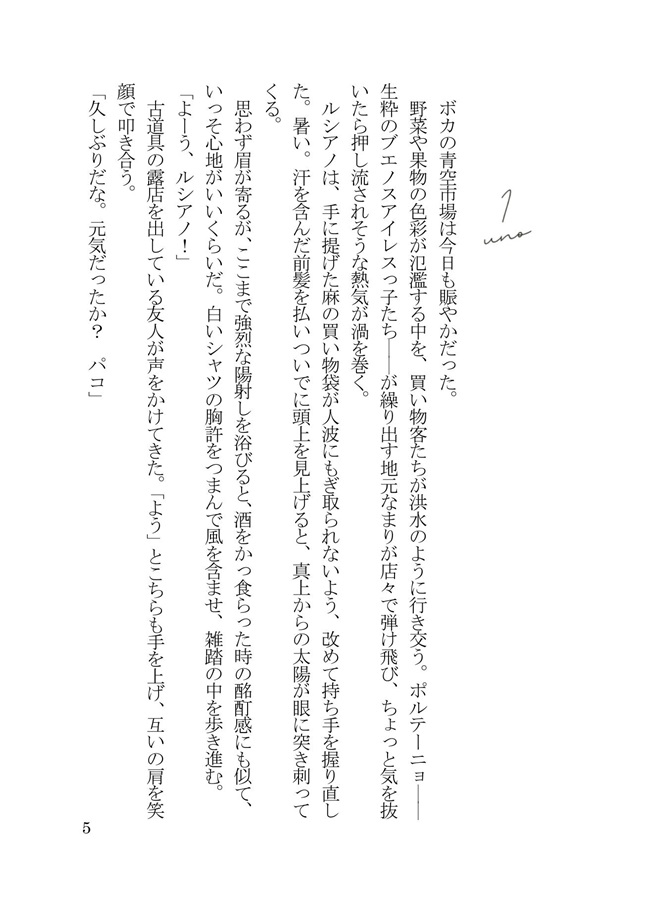 1
uno
ボカの青空市場は今日も賑やかだった。
野菜や果物の色彩が氾濫する中を、買い物客たちが洪水のように行き交う。ポルテーニョ――
生粋のブエノスアイレスっ子たち――が繰り出す地元なまりが店々で弾け飛び、ちょっと気を抜
いたら押し流されそうな熱気が渦を巻く。
ルシアノは、手に提げた麻の買い物袋が人波にもぎ取られないよう、改めて持ち手を握り直し
た。暑い。汗を含んだ前髪を払いついでに頭上を見上げると、真上からの太陽が眼に突き刺って
くる。
思わず眉が寄るが、ここまで強烈な陽射しを浴びると、酒をかっ食らった時の酩酊感にも似て、
いっそ心地がいいくらいだ。白いシャツの胸許をつまんで風を含ませ、雑踏の中を歩き進む。
「よーう、ルシアノ！」
古道具の露店を出している友人が声をかけてきた。「よう」とこちらも手を上げ、互いの肩を笑
顔で叩き合う。
「久しぶりだな。元気だったか？　パコ」
5